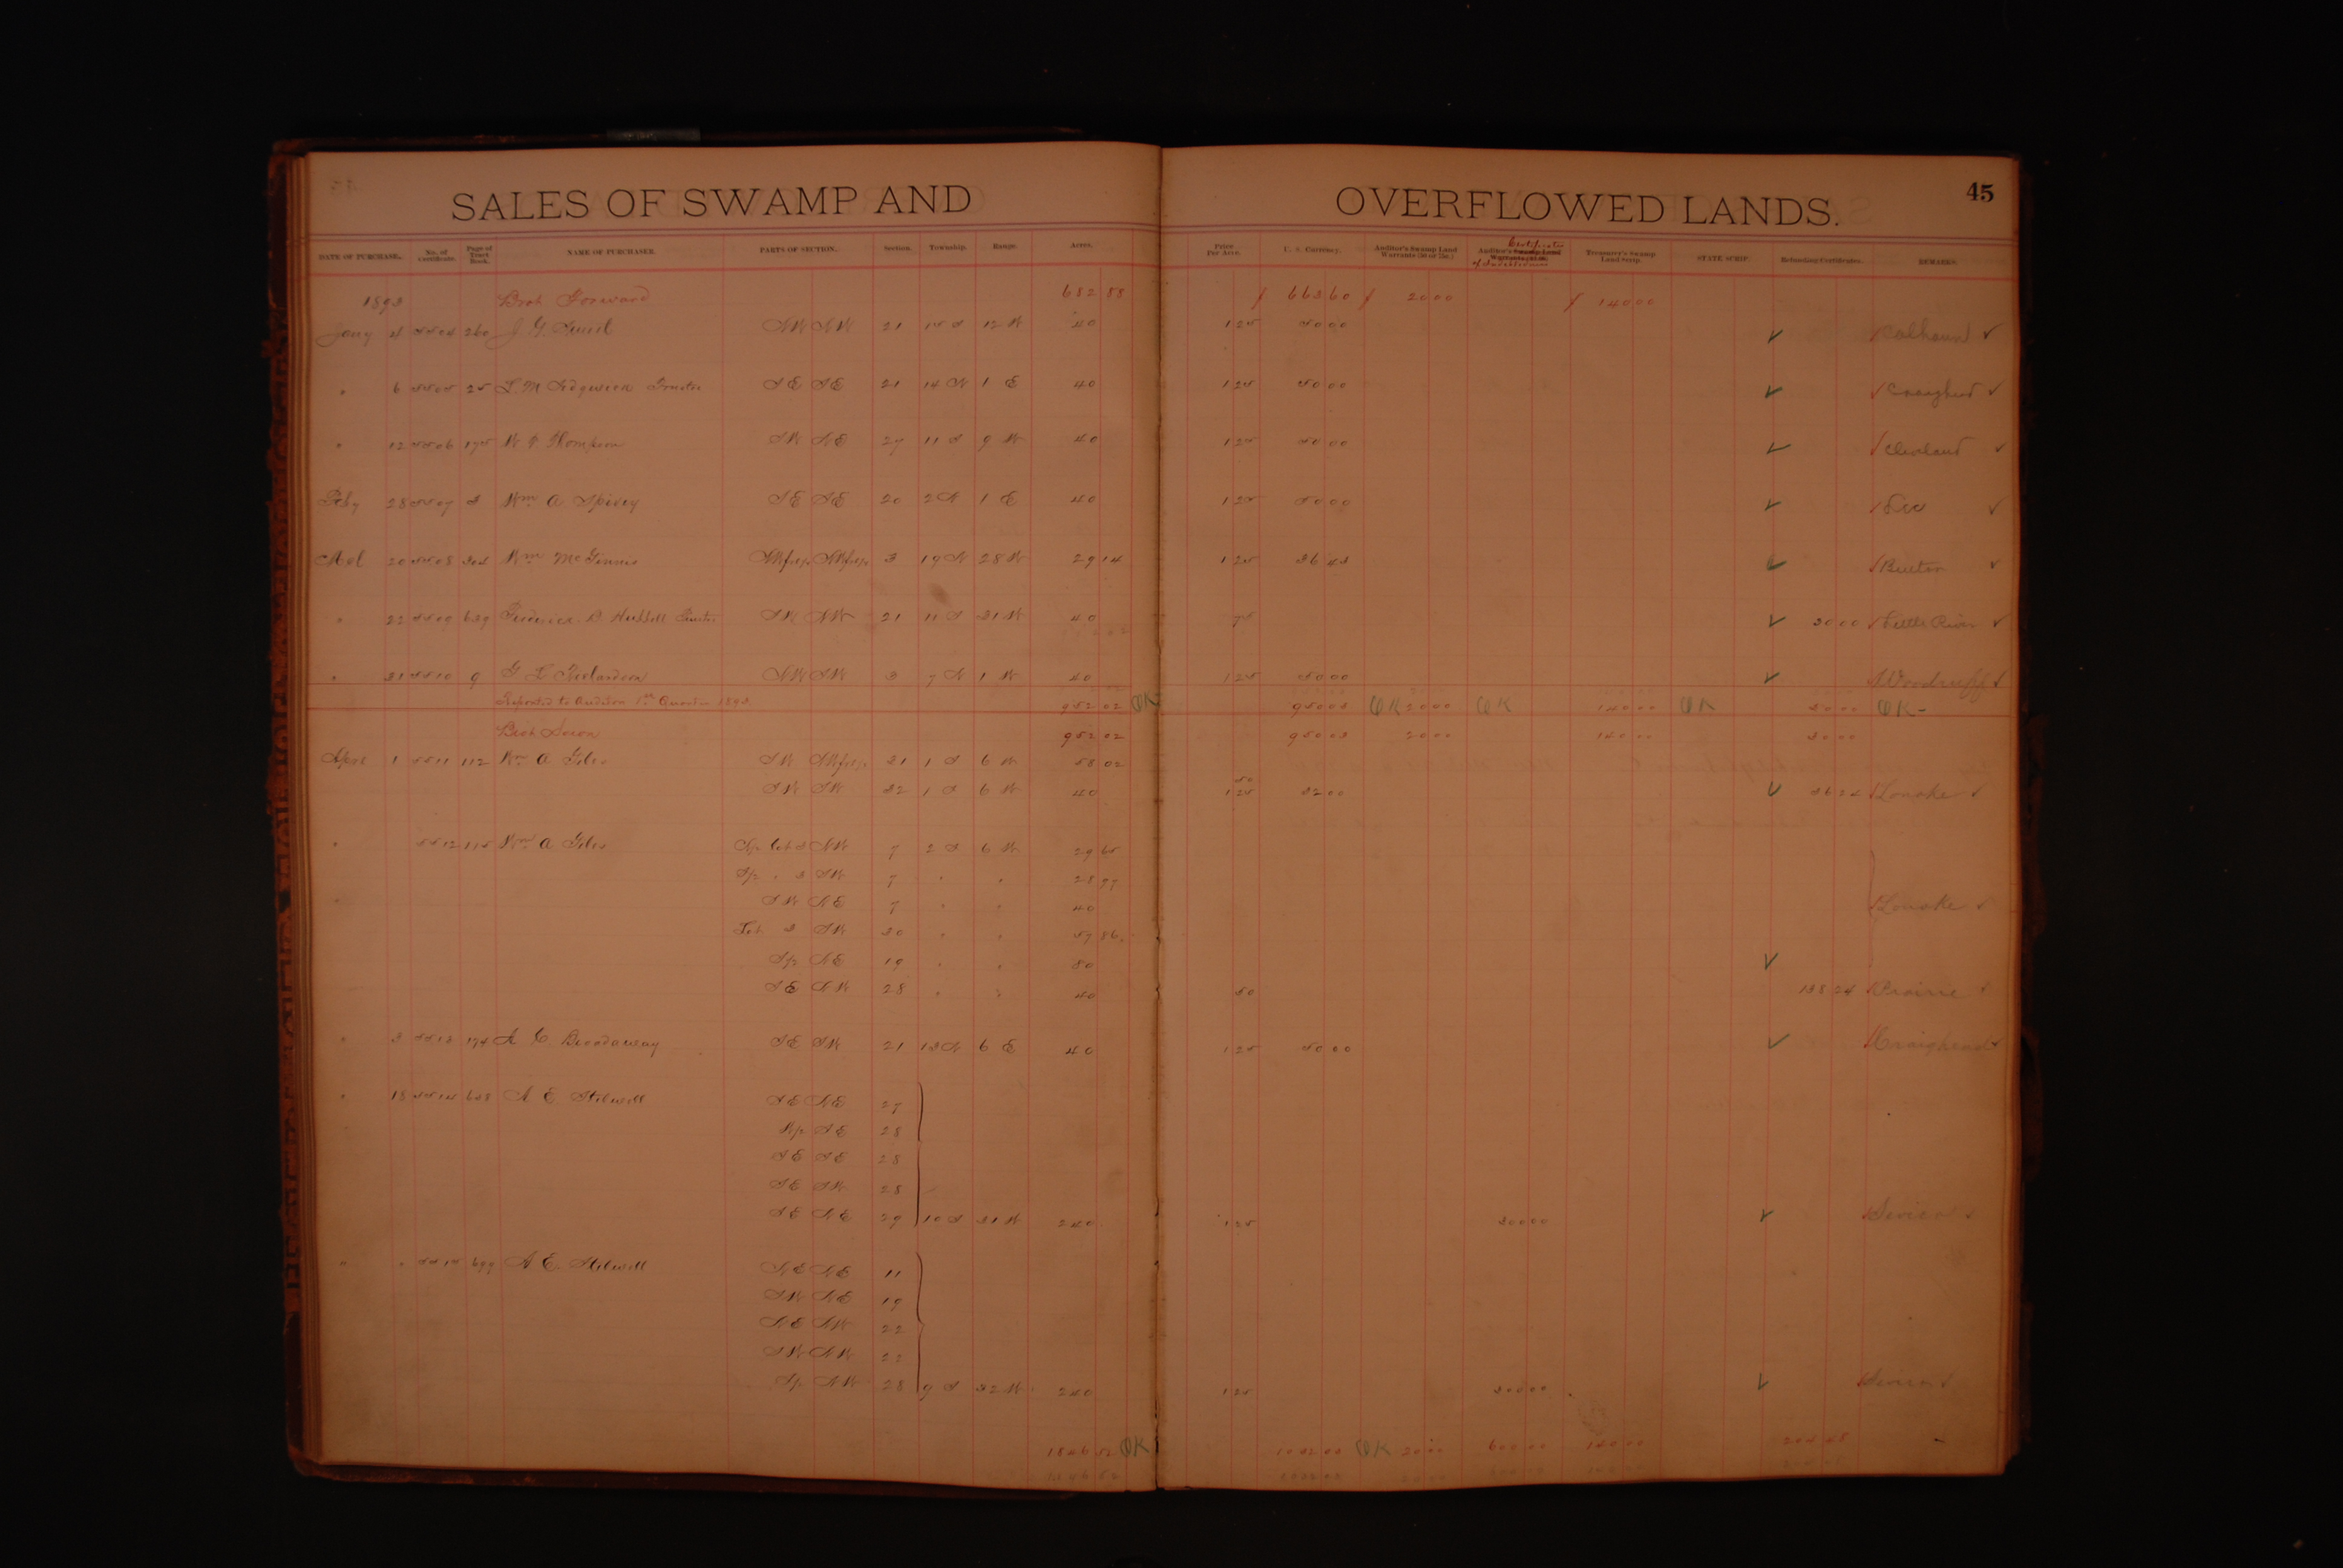 SALES OF SWAMP AND OVERFLOWED LANDS. 45
DATE OF PURCHASE. No. of Certificate. Page of Tract Book. NAME OF PURCHASER. PARTS OF SECTION. Section. Township. Range. Acres. Price Per Acre. U. S. Currency. Auditor's Swamp Land Warrants Treasurer's Swamp Land Scrip. STATE SCRIP Refunding Certificates. REMARKS.
1893 Brot Forward 682 88 663 60 20 00 140 00
Jany 4 5504 260 J. G. NW NW 21 15 S 12 W 40 1 25 50 00 Calhoun
" 6 5505 25 L M Trustee SE SE 21 14 N 1 E 40 1 25 50 00 Craighead
" 12 5506 175 W F Thompson SW NE 27 11 S 9 W 40 1 25 50 00 Cleveland
Feby 28 5507 3 Wm A Spivey SE SE 20 2 N 1 E 40 1 25 50 00 Lee
Mch 20 5508 Wm McGinnis 3 19 N 28 W 29 14 1 25 36 43 Benton
" 22 5509 639 Frederick D. Hubbell Trustee SW NW 21 11 S 31 W 40 75 30 00 Little River
" 31 5510 9 G L Richardson NW SW 3 7 N 1 W 40 1 25 50 00 Woodruff
Reported to Auditor 1st Quarter 1893. 952 02 OK 950 03 OK 20 00 OK 140 00 OK 30 00 OK
Brot Down 952 02 950 03 20 00 140 00 30 00
April 1 5511 112 Wm A Giles SW 31 1 S 6 W 58 02
SW SW 32 1 S 6 W 40 50 1 25 32 00 36 24 Lonoke
" 5512 115 Wm A Giles NW 7 2 S 6 W 29 65
3 SW 7 " " 28 97
" SW NE 7 " " 40 Lonoke
Lot 3 SW 30 " " 57 86
NE 19 " " 80
SE NW 28 " " 40 50 138 24 Prairie
" 3 5513 174 A C Broadaway SE SW 21 13 N 6 E 40 1 25 50 00 Craighead
" 18 5514 628 A E Stilwell SE NE 27
SE 28
SE SE 28
SE SW 28
SE NE 29 10 S 31 W 240 1 25 300 00 Sevier
" " 5515 699 A E Stilwell NE NE 11
SW NE 19
NE NW 22
SW NW 22
NW 28 9 S 32 W 240 1 25 300 00 Sevier
1846 52 OK 1032 03 OK 20 00 600 00 140 00 204 48